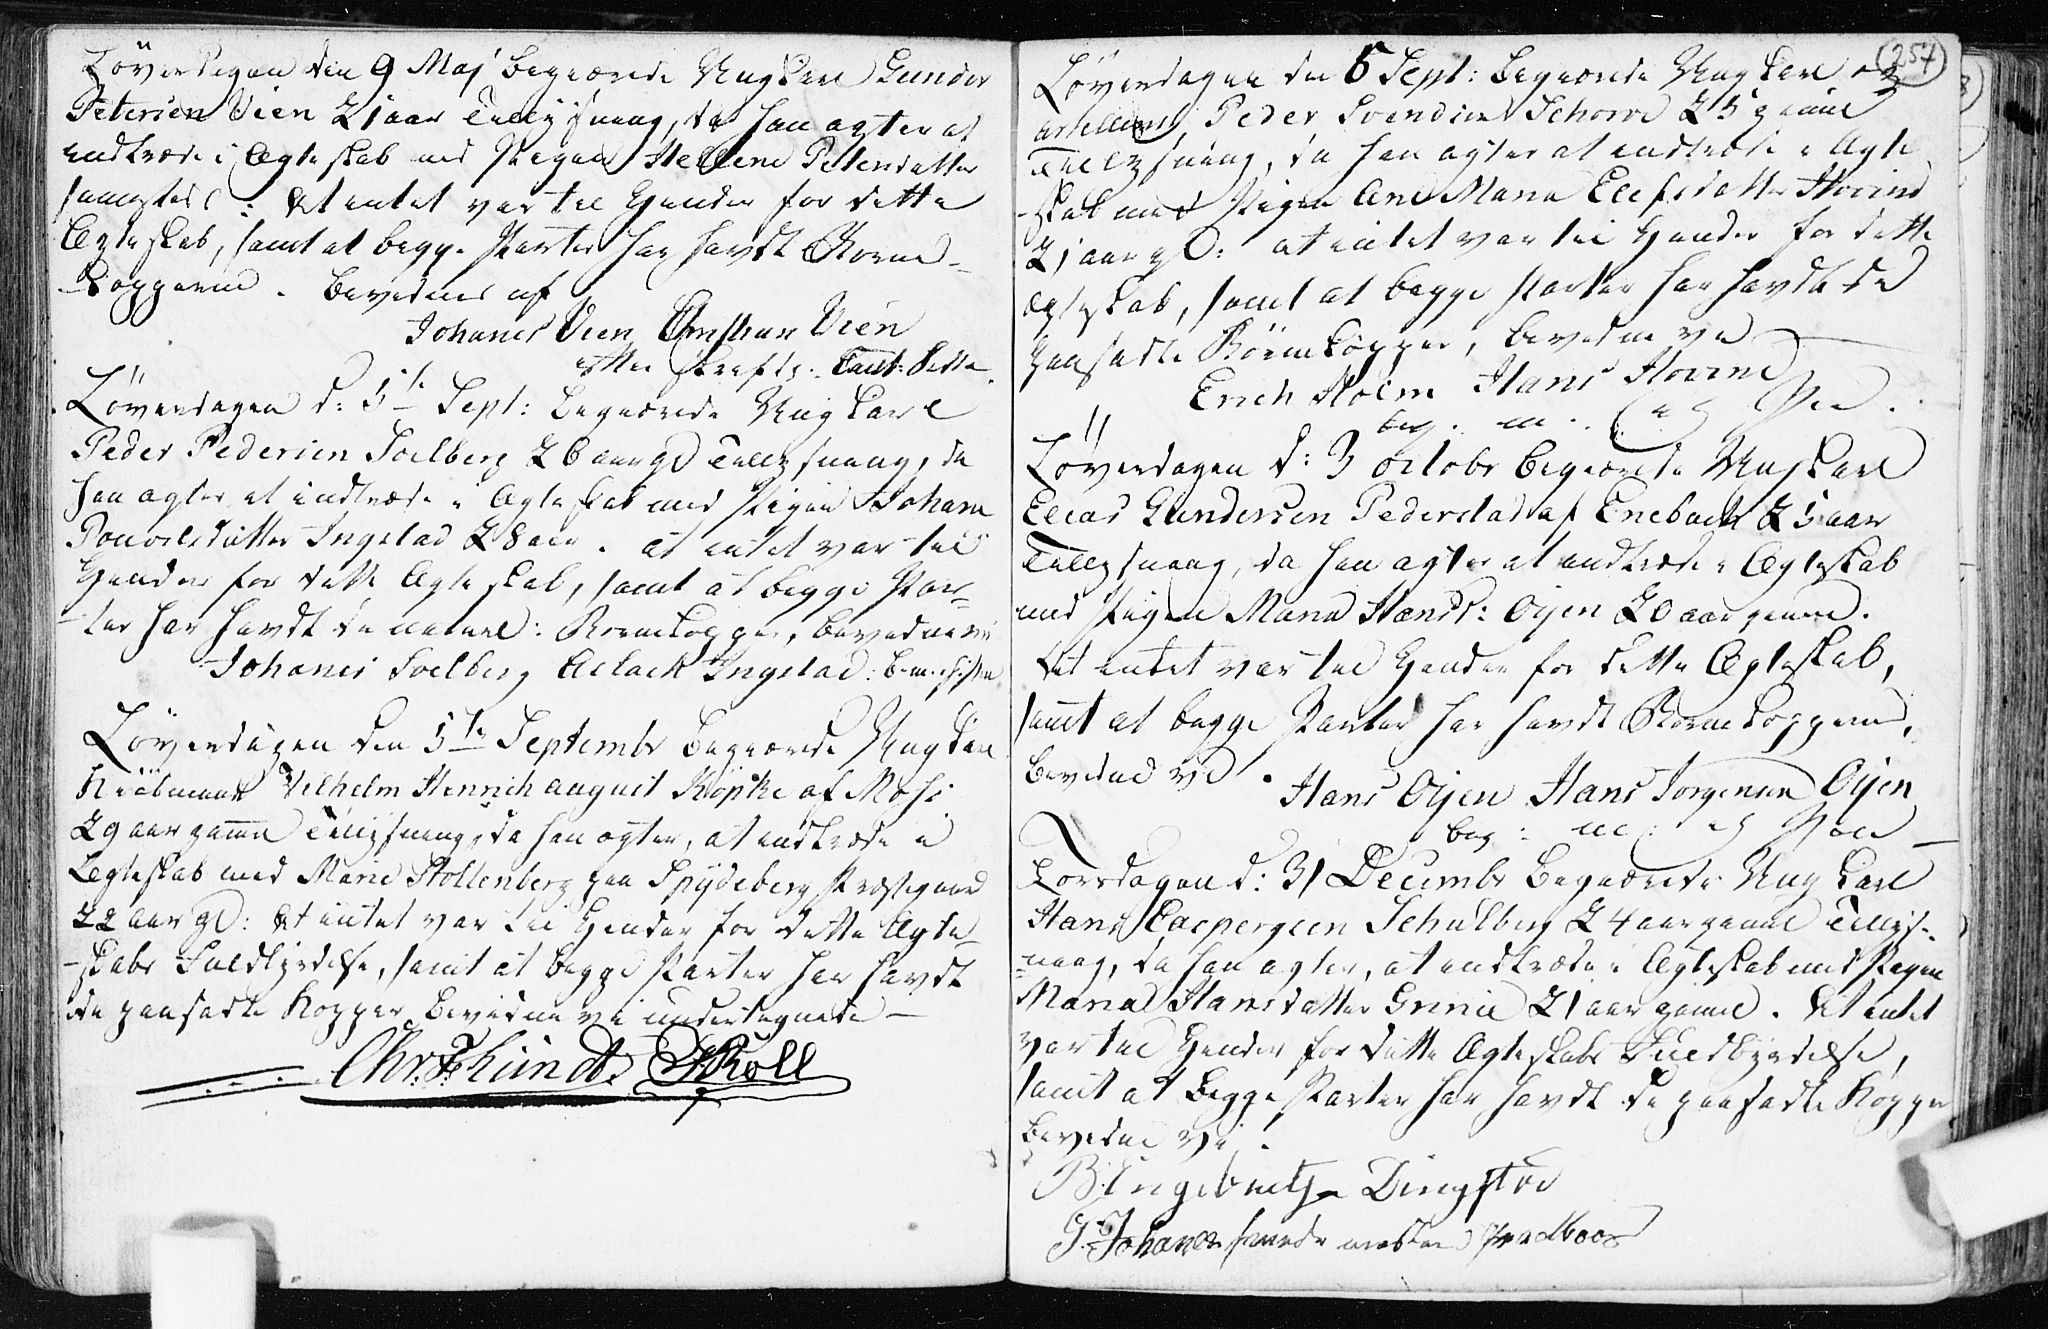 Løverdagen den 9 Maj begiærede Ungkarl Gunder
Petersen Vien 21 aar Tillysning, da han agter at
indtræde i Ægteskab med Pigen Hellene Petersdatter
sammesteds : At intet var til Hinder for dette
Ægteskab, samt at begge Parter har havdt Børne-
kopperne . bevidnes af
Johanes Vien Christian Vien
Løverdagen d: 5te Sept: begiærede Ungkarl
Peder Pedersen Soelberg 26 aar gl Tillysning, da
han agter at indtræde i Ægteskab med Pigen Johane
Poulsdatter Ingstad 28 aar . at intet var til
Hinder for dette Ægteskab, samt at begge Par-
ter har havdt de naturl: Børnekopper, bevidner vi
Johanes Soelberg Aslack Ingstad :
Løverdagen den 5te Septembr begiærede Ungkarl
Kiøbmand Vilhelm Henrich August Köpke af Moss
29 aar gamel Tillysning, da han agter, at indtræde i
Ægteskab med Marie Stoltenberg paa Spydeberg Præstegaard
22 aar gl: At intet var til Hinder for dette Ægte-
-skabs Fuldbyrdelse, samt at begge Parter har havdt
de paasatte Kopper bevidne vi undertegnede —
Chr: Schündt. Kroll
257
Løverdagen den 5 Sept: begiærede Ungkarl og
Peder Svendsen 25 gamel
Tillysning, da han agter at indtræde i Ægte
-skab med Pigen Ane Maria Elefsdatter Hovind
21 aar gl: at intet var til Hinder for dette
Ægteskab, samt at begge Parter har havdt de
paasatte Børnekopper, bevidne vi
Erich Holm Hans Hovind
Løverdagen d: 3 Octobr begiærede Ungkarl
Elias Gundersen Pederstad af Enebach 25 aar
Tillysning, da han agter at indtræde i Ægteskab
med Pigen Maria Hansd: Oijen 20 aar gamel.
At intet var til Hinder for dette Ægteskab,
samt at begge Parter har havdt Børnekopperne,
bevidne vi .
Hans Oijen Hans Jorgensen Oijen
Torsdagen d: 31 Decembr begiærede Ungkarl
Hans Caspersen Schulberg 24 aar gamel Tillys-
ning, da han agter, at indtræde i Ægteskab med Pigen
Maria Hansdatter Grinie 21 aar gamel . At intet
var til Hinder for dette Ægteskabs Fuldbyrdelse,
samt at begge Parter har havdt de paasatte Kopper
bevidne vi .
B: Ingebretsen Dingstad
G. Johanes